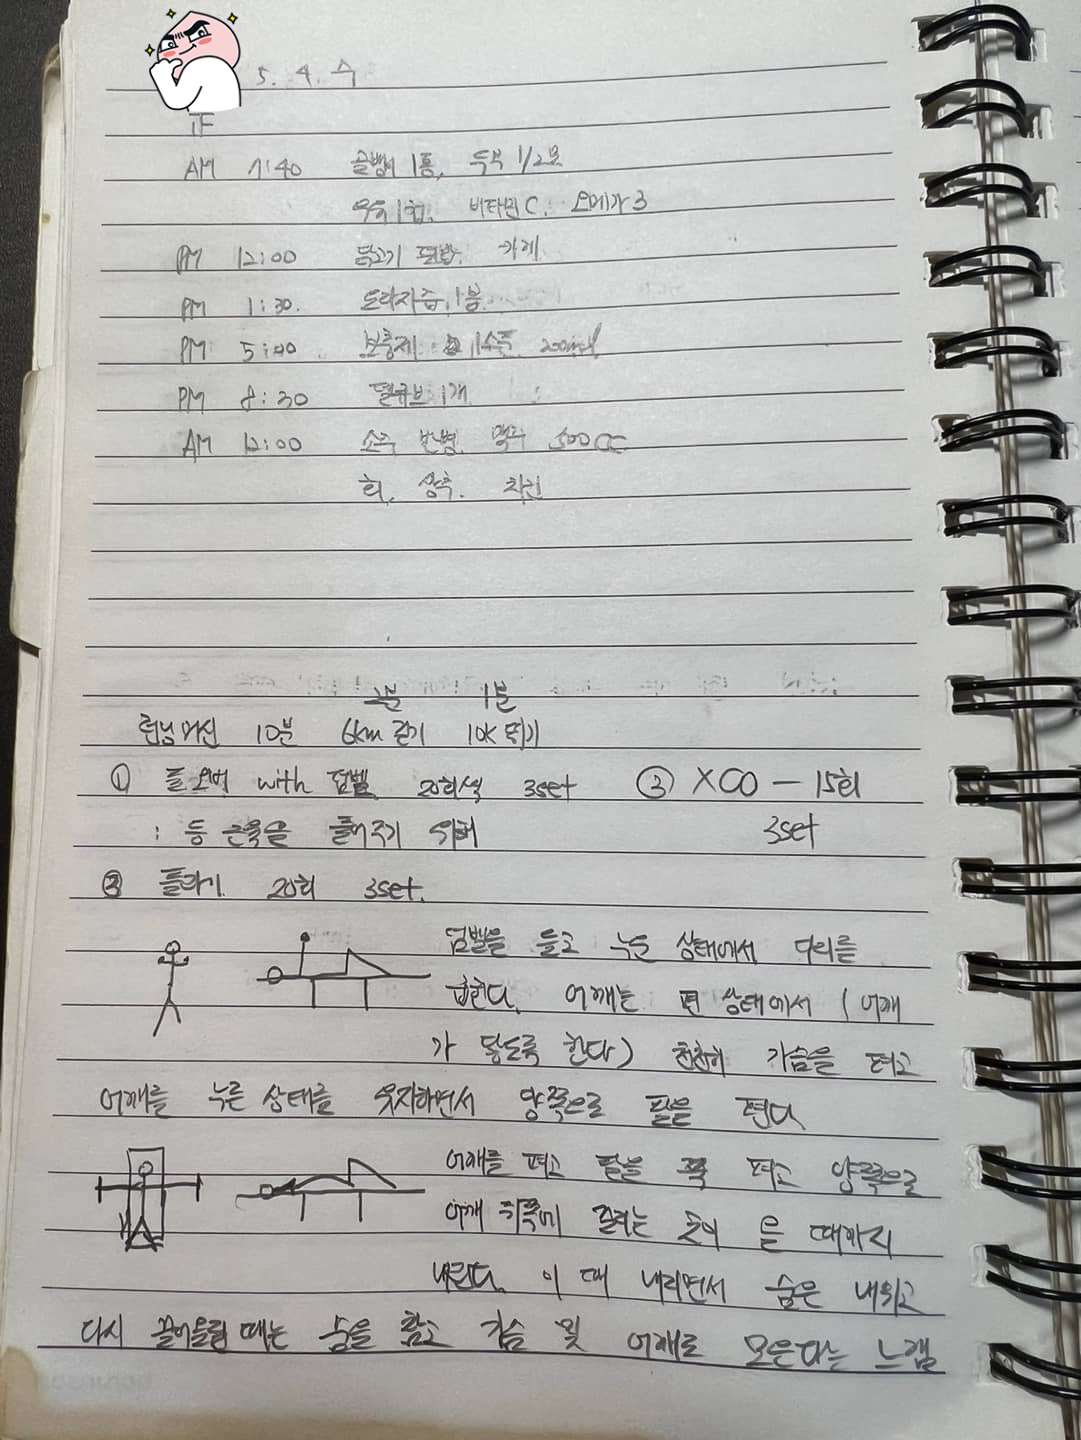 5. 4. 수
正
AM 7:40 골뱅이 1통, 두부 1/2모
우유 1컵. 비타민C. 오메가3
PM 12:00 닭고기 덮밥. 카레
PM 1:30. 도라지즙. 1봉
PM 5:40 보충제 1수푼 200ml
PM 8:30 1개
AM 12:00 소주 반병. 맥주 500CC
회. 상추. 치킨
2분 1분
런닝머신 10분 6km 걷기 10K 뛰기
① 풀오버 with 덤벨 20회씩 3set ③ XCO – 15회
: 등 근육을 풀어주기 위해 3set
② 플라이 20회 3set.
덤벨을 들고 누운 상태에서 다리를
굽힌다. 어깨는 편 상태에서 (어깨
가 닿도록 한다) 천천히 가슴을 펴고
어깨를 누른 상태를 유지하면서 양쪽으로 팔을 편다
어깨를 펴고 팔을 쭉 펴고 양쪽으로
어깨 뒤쪽에 줄려는 듯이 을 때까지
내린다. 이 때 내리면서 숨은 내쉬고
다시 끌어올릴 때는 숨을 참고 가슴 및 어깨로 모은다는 느낌